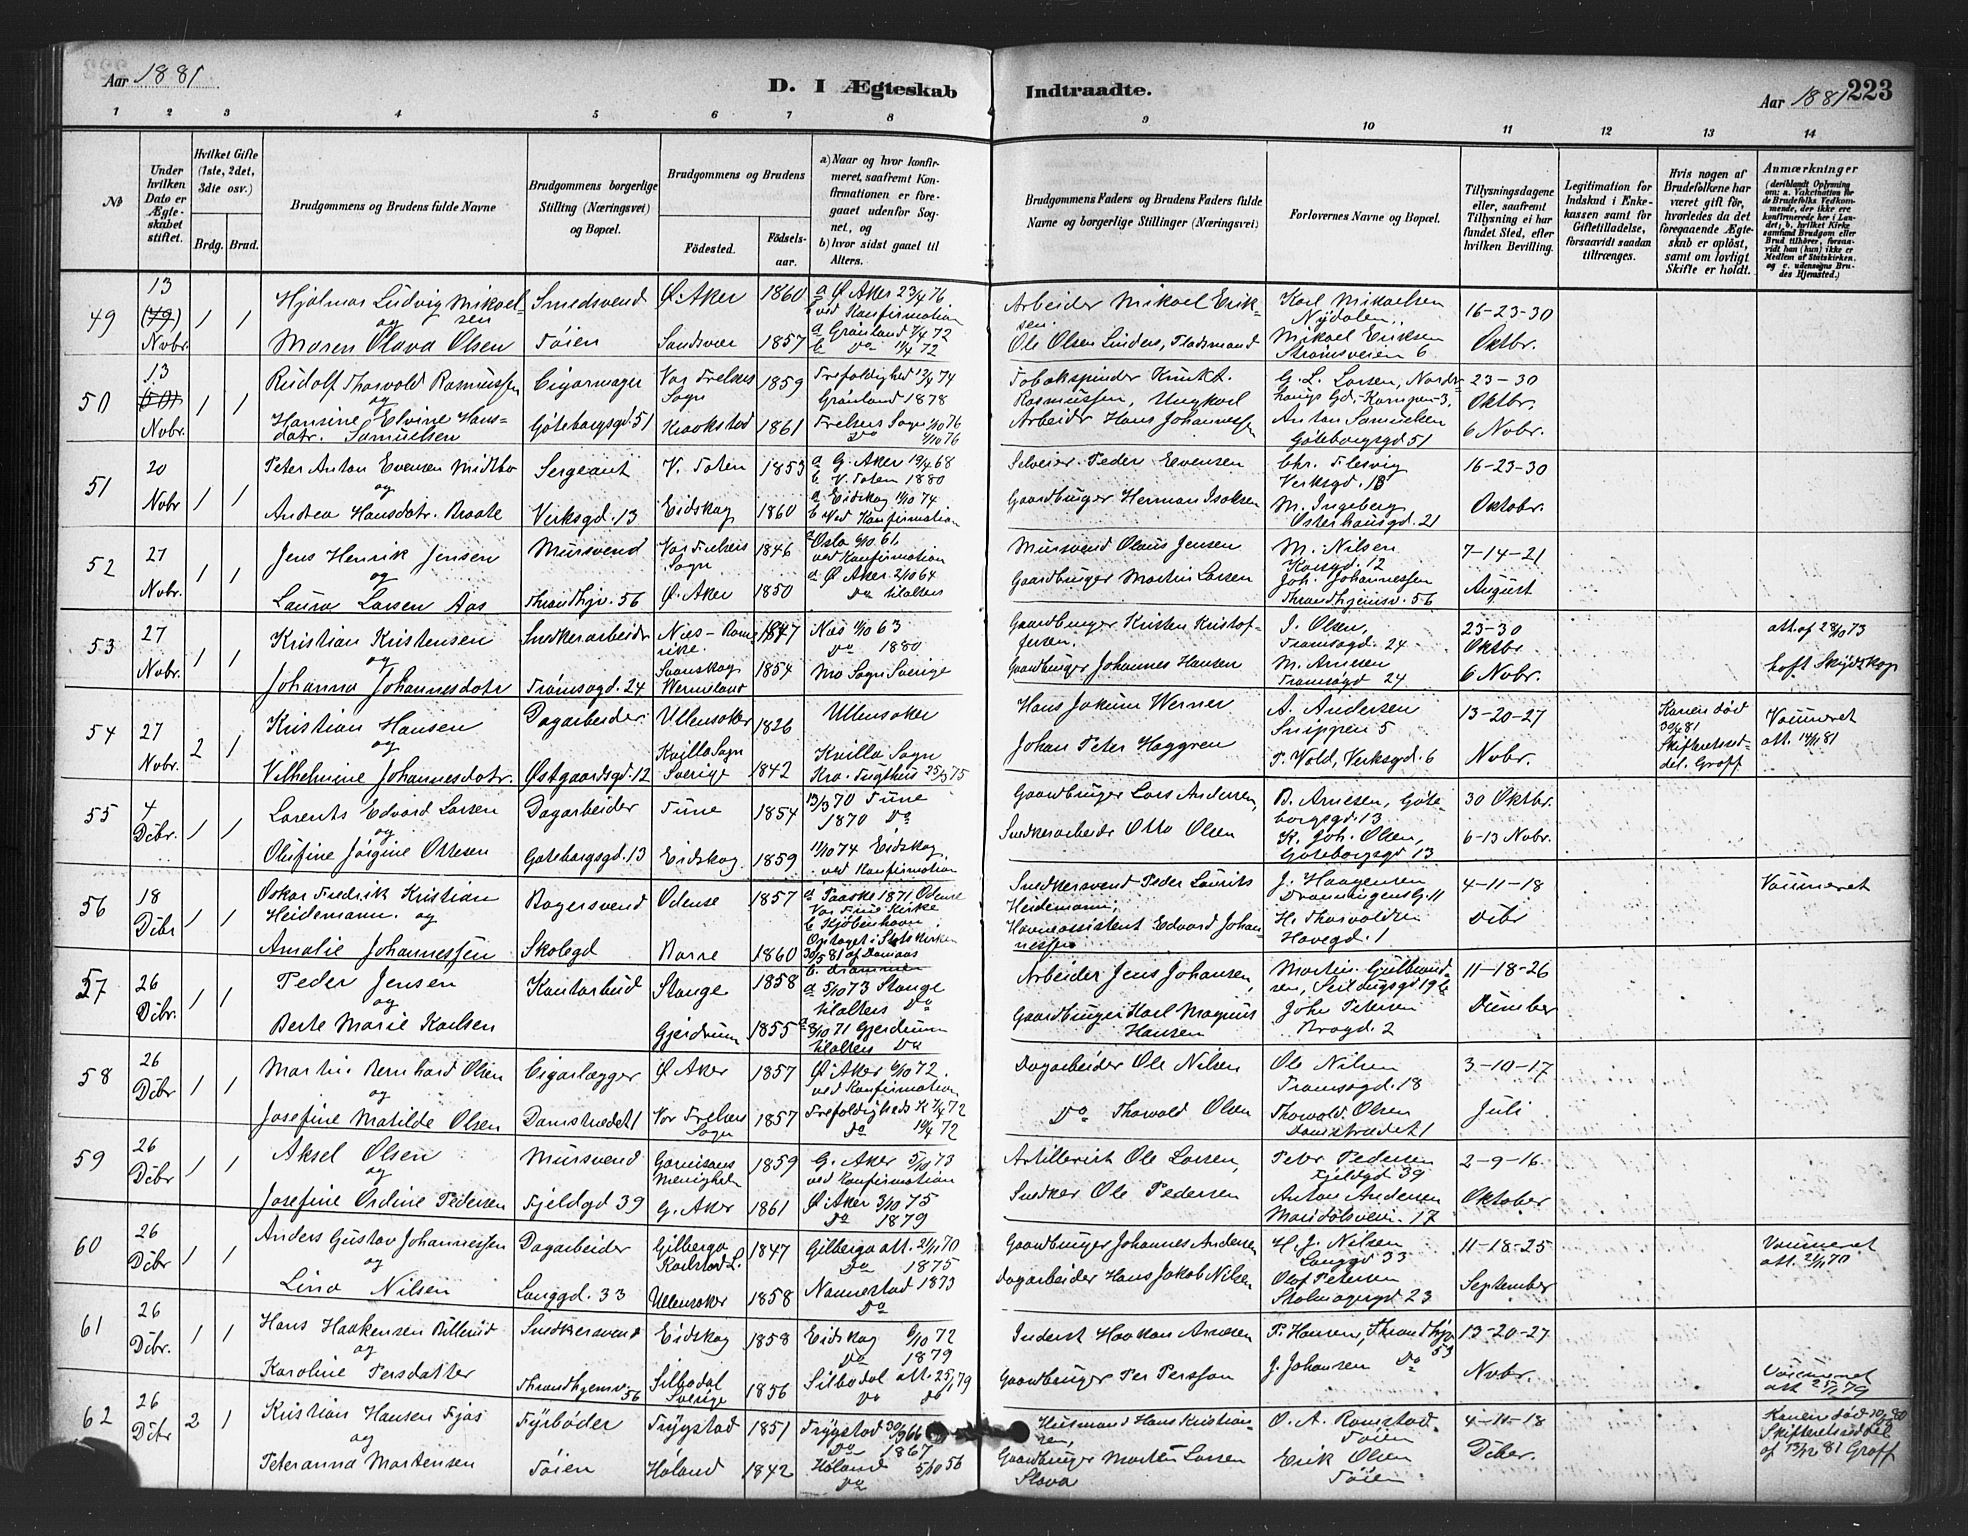 Aar 1881
D. I Ægteskab
Indtraadte.
Aar 1881
223
1 2 3 4 5 6 7 8
9 10 11 12 13 14
№
Under hvilken Dato er Ægteskabet stiftet.
Hvilket Gifte (1ste, 2det, 3die osv.)
Brdg. Brud.
Brudgommens og Brudens fulde Navne
Brudgommens borgerlige Stilling (Næringsvei) og Bopæl.
Brudgommens og Brudens
Fødested.
Fødsels-aar.
a) Naar og hvor konfirmeret, saafremt Konfirmationen er foregaaet udenfor Sognet, og
b) hvor sidst gaaet til Alters.
Brudgommens Faders og Brudens Faders fulde Navne og borgerlige Stillinger (Næringsvei)
Forlovernes Navne og Bopæl.
Tillysningsdagene eller, saafremt Tillysning ei har fundet Sted, efter hvilken Bevilling.
Legitimation for Indskud i Enkekassen samt for Giftetilladelse, forsaavidt saadan tiltrænges.
Hvis nogen af Brudefolkene har været gift før, hvorledes da det foregaaende Ægteskab er opløst, samt om lovligt Skifte er holdt.
Anmærkninger
(deriblandt Oplysning om: a. Vakcination for de Brudefolks Vedkommende, der ikke ere konfirmerede her i Landet; b. hvilket Kirkesamfund Brudgom eller Brud tilhører, forsaavidt han (hun) ikke er Medlem af Statskirken, og c. udensogns Brudes Hjemsted.)
49 13 (49) Novbr. 1 1 Hjalmar Ludvig Mikaelsen Smedsvend Ø. Aker 1860 a Ø. Aker 23/4 76 b ved Konfirmation
og
Maren Olava Olsen Tøien Sandsvær 1857 a Grønland 7/4 72 b Do 14/4 72
Arbeider Mikael Eriksen Karl Mikaelsen Nydalen 16-23-30
Ole Olsen Linders, Pladsmand Mikael Eriksen Strømsveien 6 Oktbr.
50 13 (50) Novbr. 1 1 Rudolf Thorvald Rasmussen Cigarmager Vor Frelsers Sogn 1859 Trefoldighed 12/4 74 Grønland 1878
og
Hansine Elvine Hansdatr. Samuelsen Gøteborgsgd. 51 Kraakstad 1861 Frelsers Sogn 1/10 76 Do 1/10 76
Tobakspinder Knut T. Rasmussen, Ungkarl G. L. Larsen, 23-30 Oktbr.
Arbeidr Hans Johannessen Anton Samuelsen Gøteborgsgd 51 6 Novbr.
51 20 Novbr 1 1 Peter Anton Evensen Midtbø Sergeant V. Toten 1853 a G. Aker 19/4 68 b V. Toten 1880
og
Andrea Hansdatr. Braate Verksgd. 13 Eidskog 1860 a Eidskog 11/10 74 b Ved Konfirmation
Selveier Peder Evensen Chr. Flesvig Verksgd. 13 16-23-30
Gaardbruger Herman Isaksen M. Ingeberg Osterhausgd. 21 Oktobr.
52 27 Novbr. 1 1 Jens Henrik Jensen Mursvend Vor Frelsers Sogn 1846 a Oslo 6/10 61 ved Konfirmation
og
Laura Larsen Aas Thrandhjv. 56 Ø. Aker 1850 a Ø. Aker 2/10 64 Do tilalters
Mursvend Olaus Jensen M. Nilsen Korsgd. 12 7-14-21
Gaardbruger Martin Larsen Joh. Johannessen Thrandhjemsv. 56 August
53 27 Novbr. 1 1 Kristian Kristensen Snedkerarbeidr Næs-Romerike. 1847 Næs 11/10 63 Do 1880
og
Johanna Johannesdatr Tromsøgd. 24 Svanskog Wermland 1854 Mo Sogn Sverige
Gaardbruger Kristen Kristoffersen J. Olsen, Tromsøgd. 24 23-30 Oktbr att. af 28/10 73
Gaardbruger Johannes Hansen M. Arnesen Tromsøgd 24 6 Novbr. haft Skydskop
54 27 Novbr. 2 1 Kristian Hansen Dagarbeider Ullensaker 1826 Ullensaker
og
Vilhelmine Johannesdatr. Østgaardsgd. 12 Kvilla Sogn Sverige 1842 Kvilla Sogn Kra. Tugthus 25/3 75
Hans Jakum Werner A. Andersen Snippen 5 13-20-27 Konen død 30/6 81 Vaccineret
Johan Peter Haggren P. Wold, Verksgd. 6 Novbr. Skifteretsseddel. Groff att. 14/11 81
55 4 Dcbr. 1 1 Lorents Edvard Larsen Dagarbeider Tune 1854 13/3 70 Tune 1870 Do
og
Olefine Jørgine Ottesen Gøteborgsgd. 13 Eidskog 1859 11/10 74 Eidskog ved Konfirmation
Gaardbruger Lars Andersen, B. Arnesen, Gøteborgsgd. 13 30 Oktbr.
Snedkerarbeidr Otto Olsen K. Joh. Olsen, Gøteborgsgd 13 6-13 Novbr.
56 18 Dcbr 1 1 Oskar Fredrik Kristian Heidemann Bagersvend Odense 1857 a Paaske 1871 Odense Vor Frue Kirke b Kjøbenhavn
og
Amalie Johannessen Skolegd Borre 1860 Optaget i Statskirken 30/5 81 af b. Drammen
Snedkersvend Peder Laurits Heidemann J. Haagensen Dronningens G. 11 4-11-18 Vaccineret
Havneassistent Edvard Johannessen H. Thorvaldsen Havegd. 1 Dcbr
57 26 Dcbr. 1 1 Peder Jensen Kontorbud Stange 1858 a 5/10 73 Stange tilalters Do
og
Berte Marie Karlsen Gjerdrum 1855 a 8/10 71 Gjerdrum tilalters Do
Arbeider Jens Johansen, Martin Gulbrandsen, 11-18-26
Gaardbruger Karl Magnus Hansen Johs Petersen Brogd. 2 Dcember
58 26 Dcbr 1 1 Martin Bernhard Olsen Cigarlægger Ø. Aker 1857 Ø. Aker 6/10 72. ved Konfirmation
og
Josefine Matilde Olsen Damstrædet 1 Vor Frelsers Sogn 1857 Trefoldigheds K 7/4 72 Do 14/4 72
Dagarbeider Ole Nilsen Ole Nilsen Tromsøgd. 18 3-10-17
Do Thorvald Olsen Thorvald Olsen Damstrædet 1 Juli
59 26 Dcbr. 1 1 Aksel Olsen Mursvend Garnisons Menighed 1859 G. Aker 5/10 73 ved Konfirmation
og
Josefine Ordine Pedersen Fjeldgd 39 G. Aker 1861 Ø. Aker 3/10 75 Do 1879
Artillerist Ole Larsen, Petr Pedersen Fjeldgd 39 2-9-16.
Snedker Ole Pedersen Anton Andersen Maridalsvein. 17 Oktober
60 26 Dcbr 1 1 Anders Gustav Johannessen Dagarbeider Gilberga Karlstad L. 1847 Gilberga att. 21/11 70 Do 1875
og
Lina Nilsen Langgd. 33 Ullensaker 1858 Nannestad 1873 Do
Gaardbruger Johannes Andersen H. J. Nilsen Langgd 33 11-18-25 Vaccineret
Dagarbeider Hans Jakob Nilsen Olof Petersen Stolmagergd 23 September att. 21/11 70
61 26 Dcbr. 1 1 Hans Haakensen Billerud Snedkersvend Eidskog 1858 Eidskog 6/10 72 Do 1879
og
Karoline Persdatter Thrandhjemsv. 56 Silbodal Sverige 1856 Silbodal att. 25/1 79 Do do
Inderst Haakan Arnesen P. Hansen, Thrandhjv 53 13-20-27
Gaardbruger Per Persson J. Johansen Do Novbr. Vaccineret att 25/1 79
62 26 Dcbr 2 1 Kristian Hansen Fjøs Fyrbøder Trygstad 1851 Trygstad 30/9 66 Do 1867
og
Peteranna Martensen Tøien Høland 1842 Høland 5/10 56 Do
Husmand Hans Kristiansen, O. A. Romstad Tøien 4-11-18 Konen død 10/1 80
Gaardbruger Morten Larsen Slava Erik Olsen Tøien Dcber. Skifteretsseddel af 13/12 81 Groff